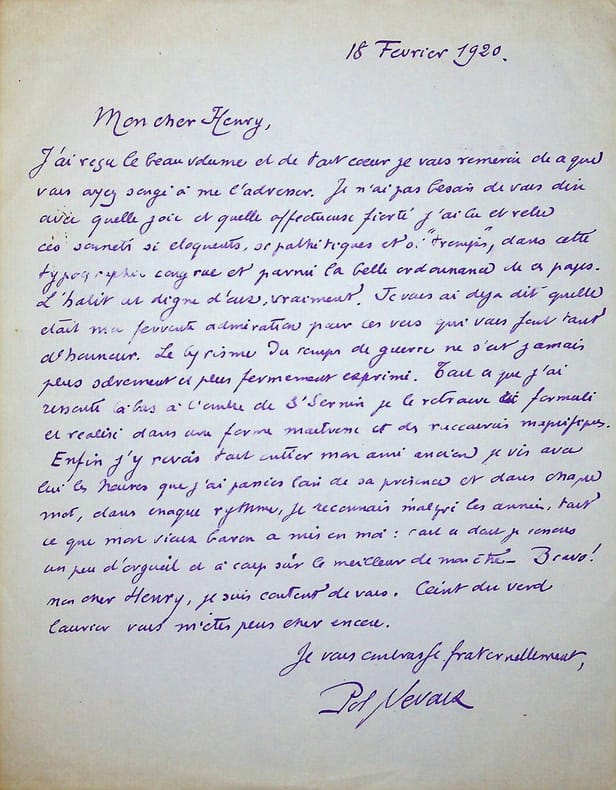 18 Fevrier 1920.
Mon cher Henry,
J'ai reçu le beau volume et de tout cœur je vous remercie de ce que
vous ayez songé à me l'adresser. Je n'ai pas besoin de vous dire
avec quelle joie et quelle affectueuse fierté j'ai lu et relu
ces sonnets si eloquents, si pathétiques et si "trempés", dans cette
typographie congrue et parmi la belle ordonnance de ces pages.
L'habit est digne d'eux, vraiment. Je vous ai deja dit quelle
etait ma fervente admiration pour ces vers qui vous font tant
d'honneur. Le lyrisme du temps de guerre ne s'est jamais
plus sobrement et plus fermement exprimé. Tout ce que j'ai
ressenti là bas à l'ombre de St Sernin je le retrouve formulé
et realisé dans une forme maitresse et des raccourcis magnifiques.
Enfin j'y revois tout entier mon ami ancien je vis avec
lui les heures que j'ai passées loin de sa présence et dans chaque
mot, dans chaque rythme, je reconnais malgré les années, tout
ce que mon vieux baron a mis en moi : tout ce dont je conçus
un peu d'orgueil et à coup sûr le meilleur de mon être – Bravo!
mon cher Henry, je suis content de vous. Ceint du verd
laurier vous m'etes plus cher encore.
Je vous embrasse fraternellement,
Pol Neveux